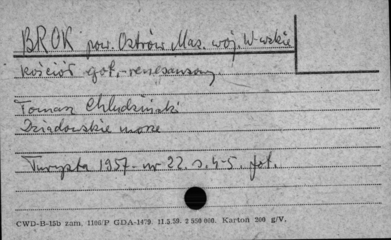 BROK pow. Ostrów Maz. woj. W-wskie
kościół got.-renesansowy
Tomasz Chludziński
Dziadowskie morze
Turysta 1957 - nr 22. s. 4-5. fot.
CWD-B-15b zam. 1106/P GDA-1479. 11.5.59. 2 550 000. Karton 200 g/V.